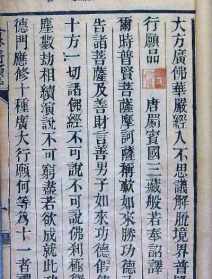 大方廣佛華嚴經入不思議解脫境界普
行願品 唐罽賓國三藏般若奉詔譯
爾時普賢菩薩摩訶薩稱歎如來勝功德
告諸菩薩及善財言善男子如來功德假
十方一切諸佛經不可說不可說佛剎極
塵數劫相續演說不可窮盡若欲成就此
德門應修十種廣大行願何等為十一者禮